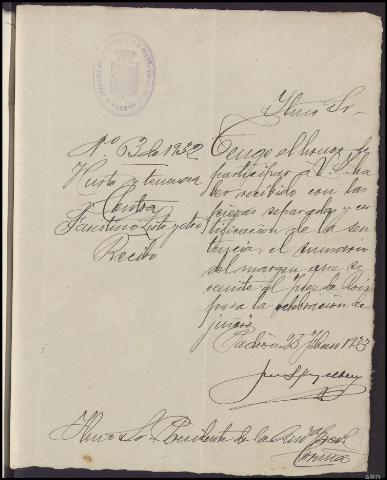 Ilmo Sr.
Nº 63 de 1932
Hurto y tenencia
Contra
Faustino Liste y otro
Recibo
Tengo el honor de
participar a V.S. ha-
ber recibido con las
piezas separadas y cer
tificacion de la sen-
tencia, el sumario
del margen que se
remite al Juez de Rois
para la celebración de
juicio
Padrón 25 Febrero 1933
Ilmo Sr Presidente de la Audª
Coruña
ARG